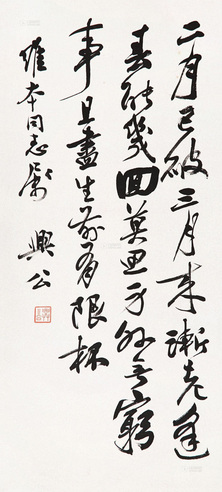 二月已破三月来渐老逢
春能几回莫思身外无穷
事且尽生前有限杯
维本同志属
兴公